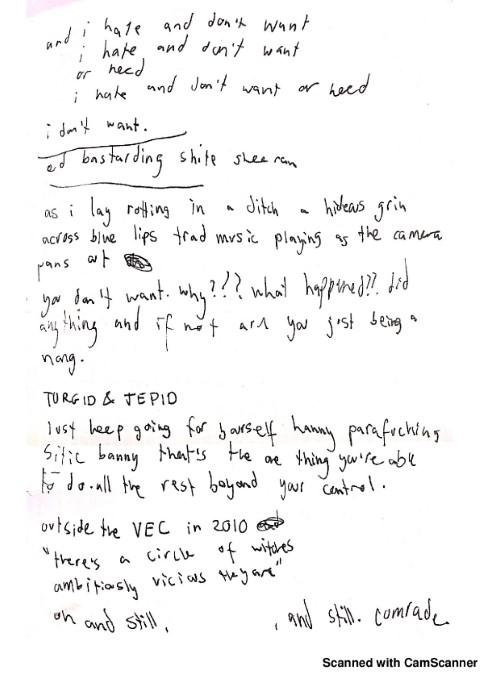 and i hate and don't want
i hate and don't want
or need
i hate and don't want or need
i don't want.
ed bastarding shite shee ran
as i lay rotting in a ditch a hideous grin
across blue lips trad music playing as the camera
pans out
you don't want. why??? what happened?? did
anything and if not are you just being a
nang.
TURGID & TEPID
Just keep going for yourself hanny parafucking
Sitic banny that's the one thing you're able
to do. all the rest beyond your control.
outside the VEC in 2010
"there's a circle of witches
ambitiously vicious they are"
oh and still, , and still. comrade
Scanned with CamScanner